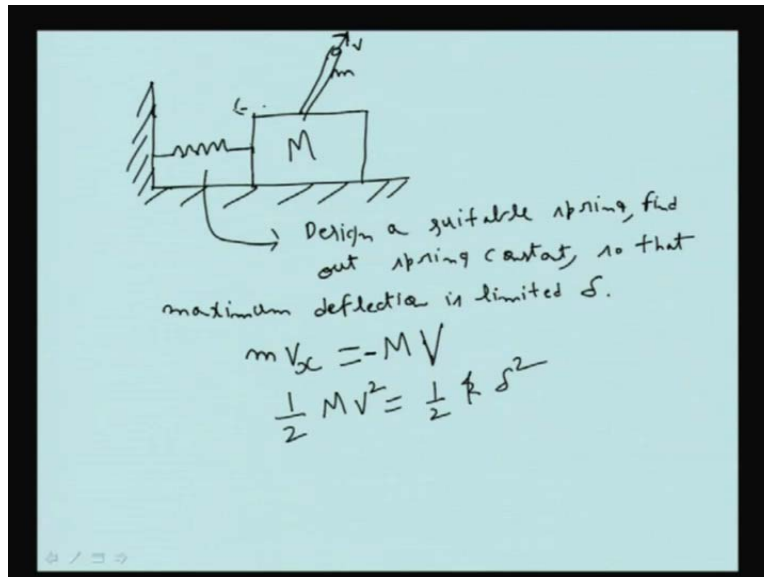 v
m
M
Design a suitable spring, find
out spring constat, so that
maximum deflection is limited δ.
m Vx = -M V
1/2 M V² = 1/2 k δ²